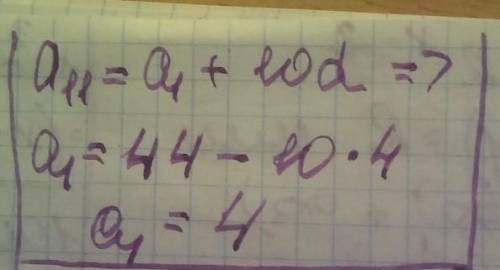 a₁₁ = a₁ + 10d =>
a₁ = 44 - 10 · 4
a₁ = 4